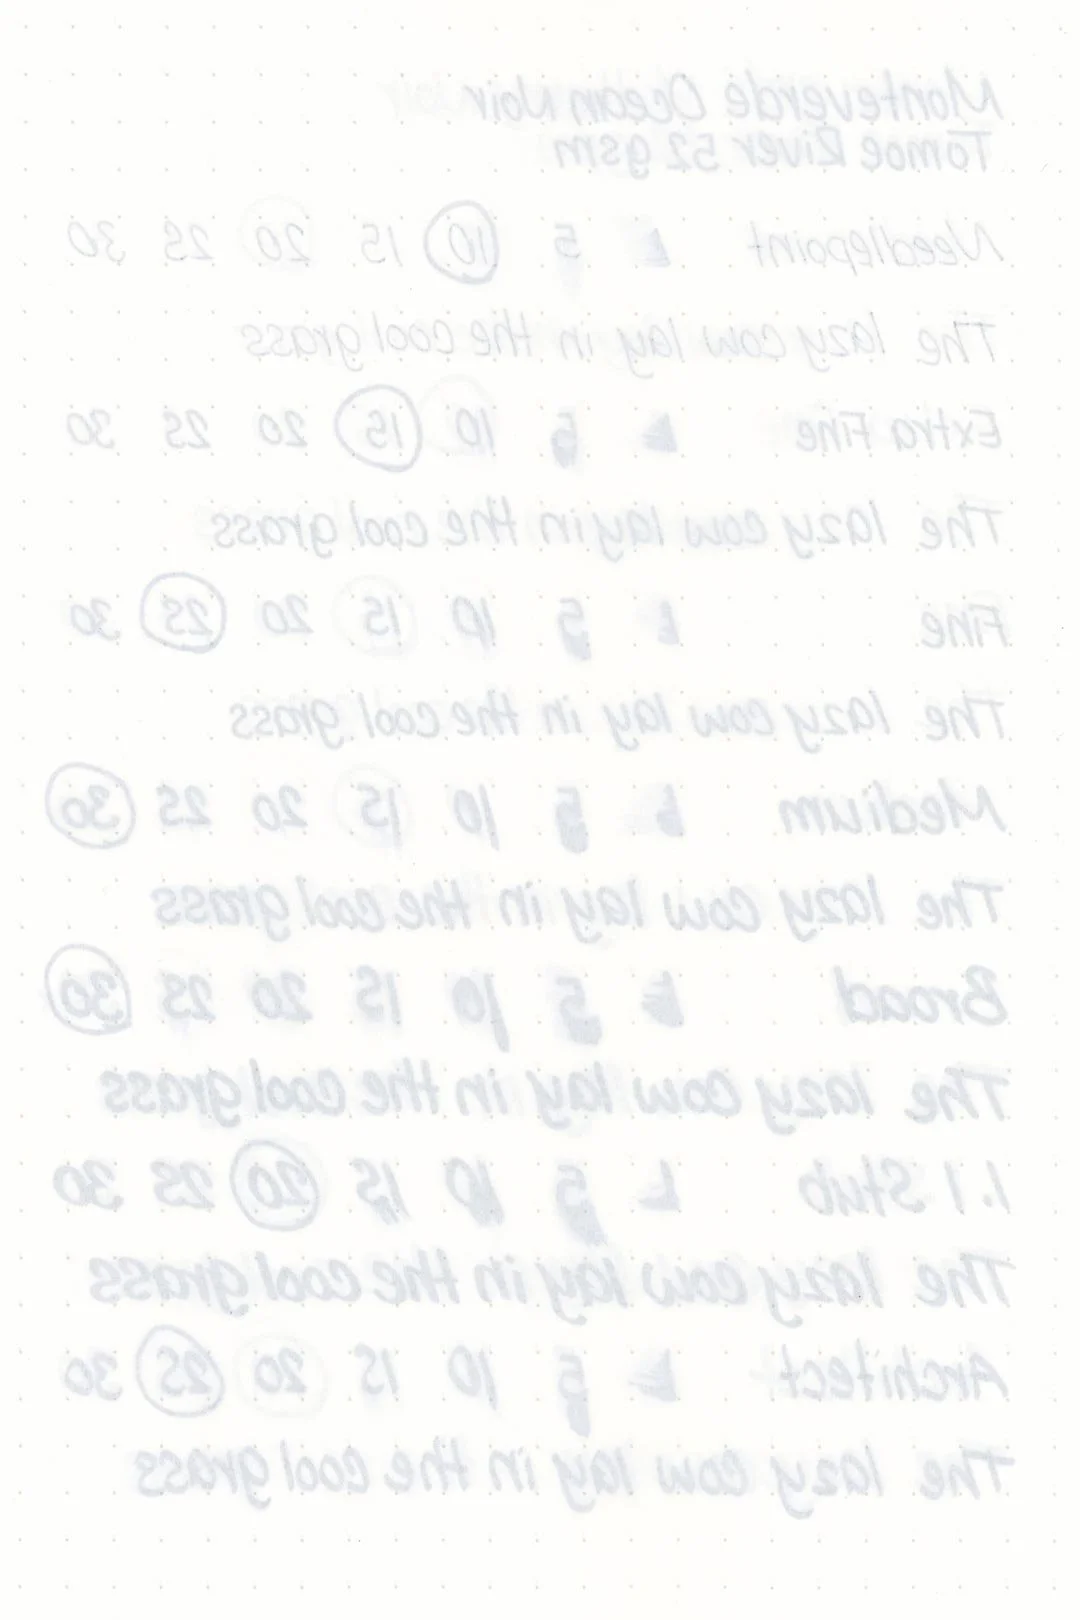 Monteverde Ocean Noir
Tomoe River 52 gsm
Needlepoint 1 5 10 15 20 25 30
The lazy cow lay in the cool grass
Extra Fine 1 5 10 15 20 25 30
The lazy cow lay in the cool grass
Fine 1 5 10 15 20 25 30
The lazy cow lay in the cool grass
Medium 1 5 10 15 20 25 30
The lazy cow lay in the cool grass
Broad 1 5 10 15 20 25 30
The lazy cow lay in the cool grass
1.1 Stub 1 5 10 15 20 25 30
The lazy cow lay in the cool grass
Architect 1 5 10 15 20 25 30
The lazy cow lay in the cool grass